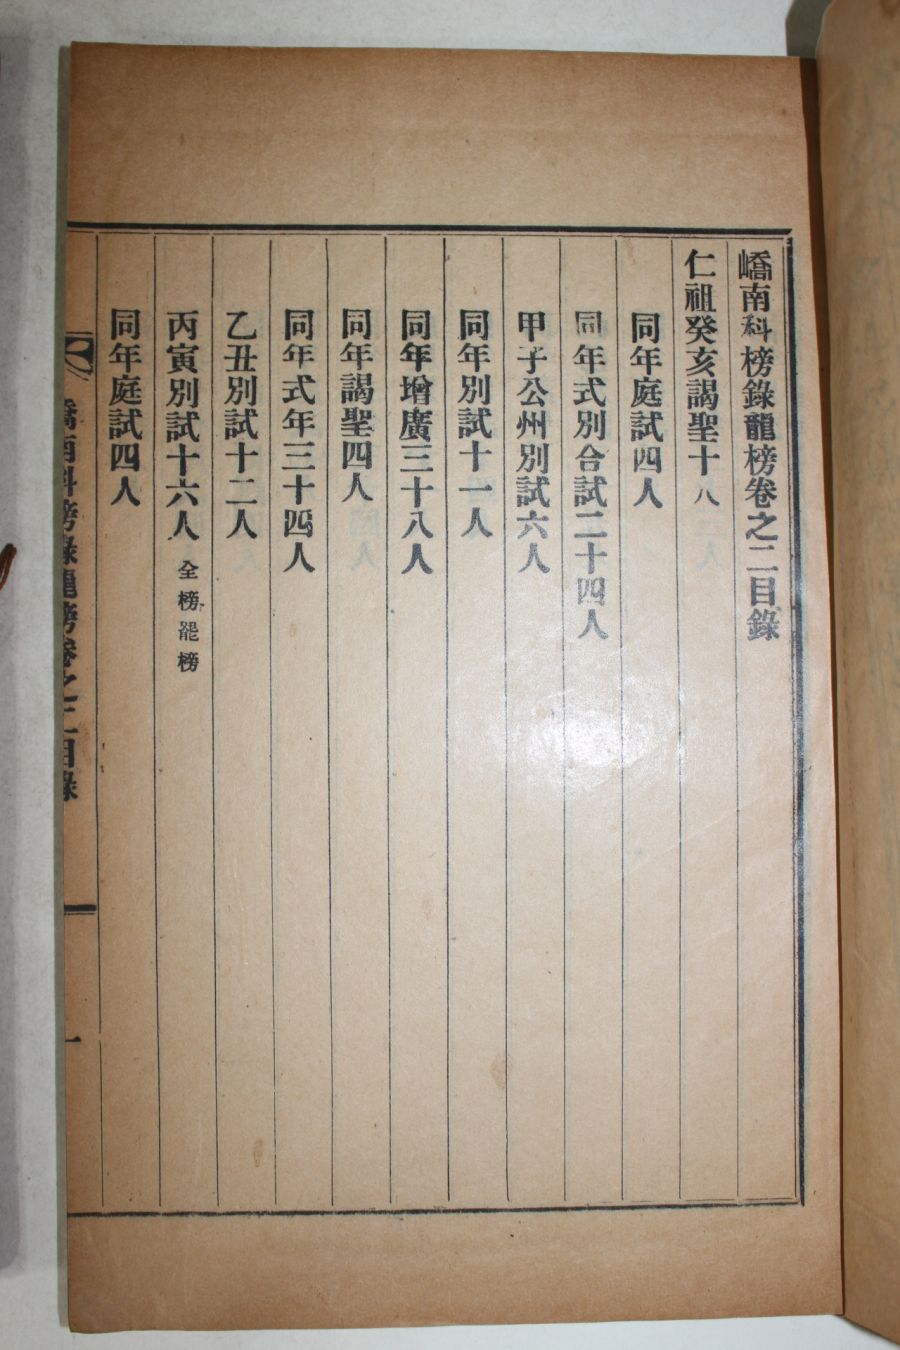 嶠南科榜錄龍榜卷之二目錄
仁祖癸亥謁聖十八
同年庭試四人
同年式別合試二十四人
甲子公州別試六人
同年別試十一人
同年增廣三十八人
同年謁聖四人
同年式年三十四人
乙丑別試十二人
丙寅別試十六人 全榜罷榜
同年庭試四人
嶠南科榜錄龍榜卷之二目錄 一